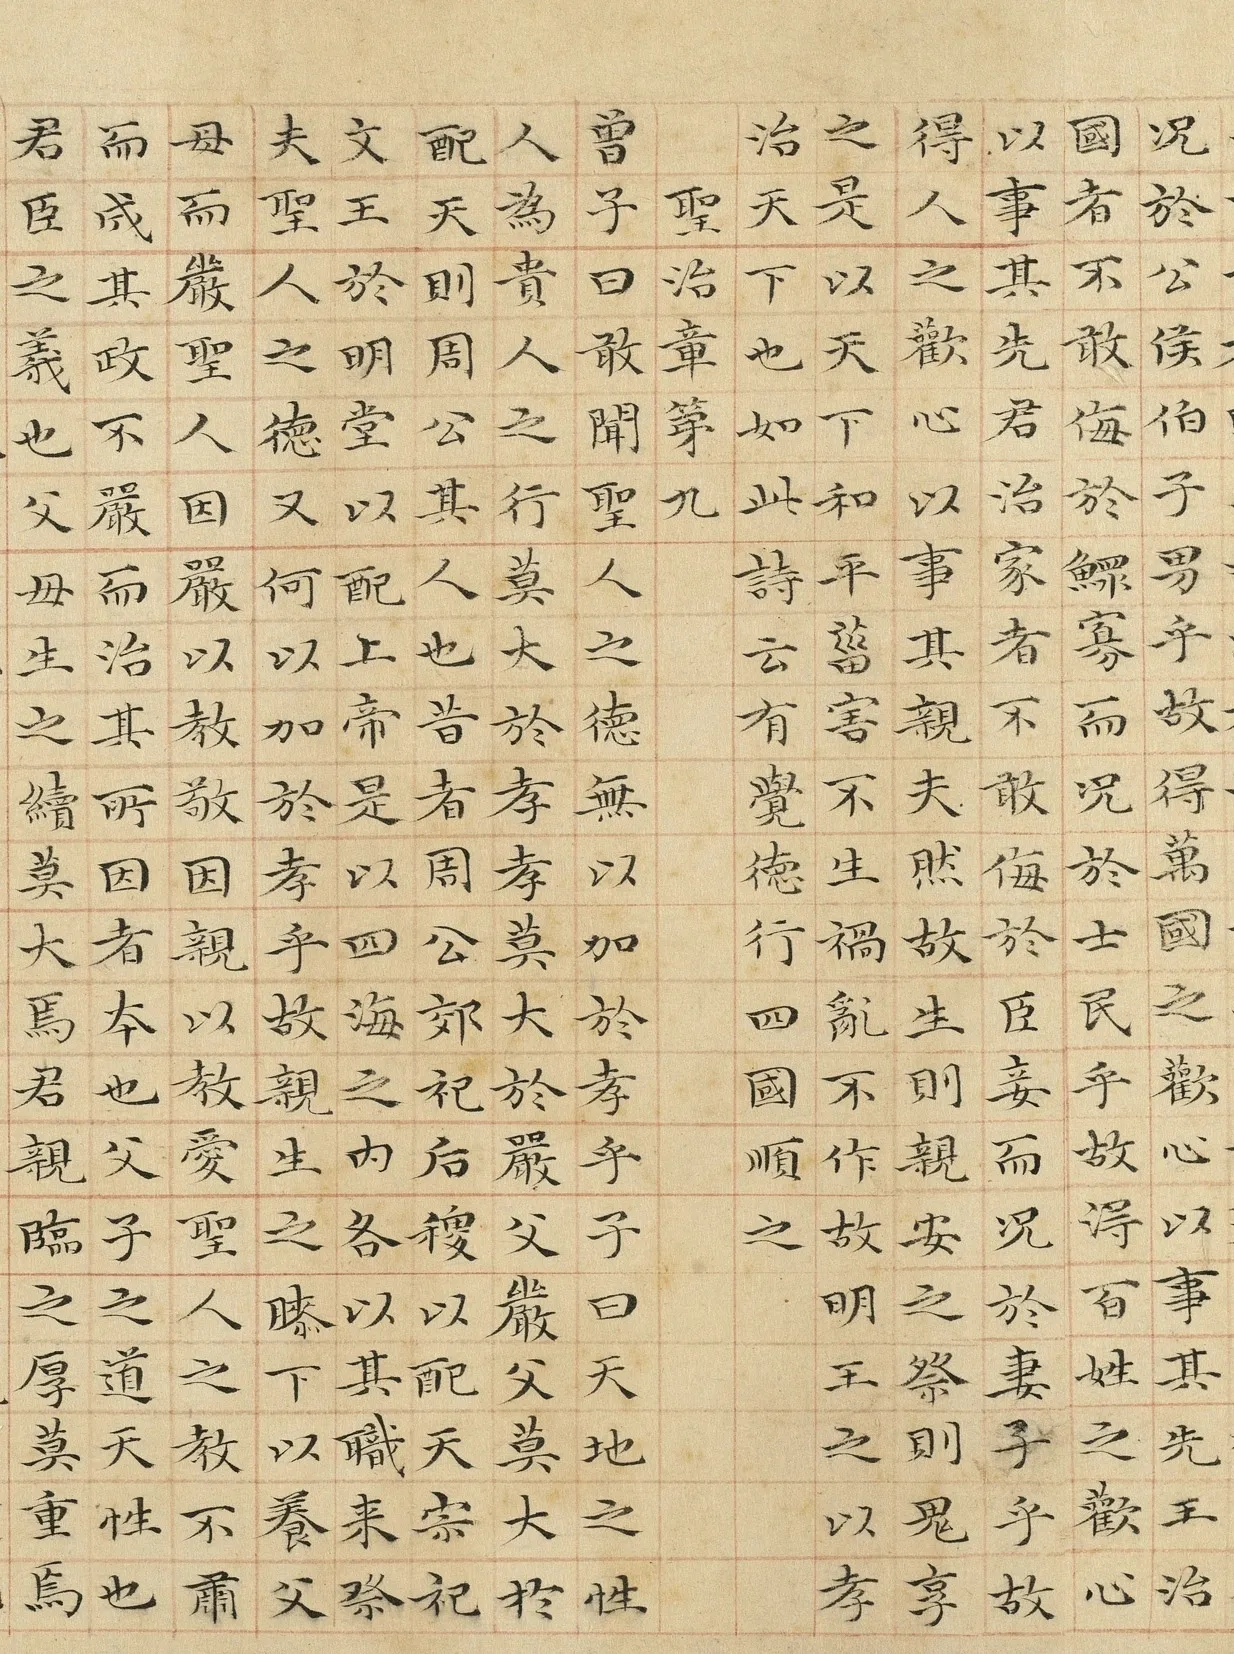 况於公侯伯子男乎故得萬國之歡心以事其先王治
國者不敢侮於鰥寡而况於士民乎故得百姓之歡心
以事其先君治家者不敢侮於臣妾而况於妻子乎故
得人之歡心以事其親夫然故生則親安之祭則鬼享
之是以天下和平菑害不生禍亂不作故明王之以孝
治天下也如此詩云有覺德行四國順之
聖治章第九
曾子曰敢聞聖人之德無以加於孝乎子曰天地之性
人為貴人之行莫大於孝孝莫大於嚴父嚴父莫大於
配天則周公其人也昔者周公郊祀后稷以配天宗祀
文王於明堂以配上帝是以四海之内各以其職来祭
夫聖人之德又何以加於孝乎故親生之膝下以養父
母而嚴聖人因嚴以教敬因親以教愛聖人之教不肅
而成其政不嚴而治其所因者本也父子之道天性也
君臣之義也父母生之續莫大焉君親臨之厚莫重焉